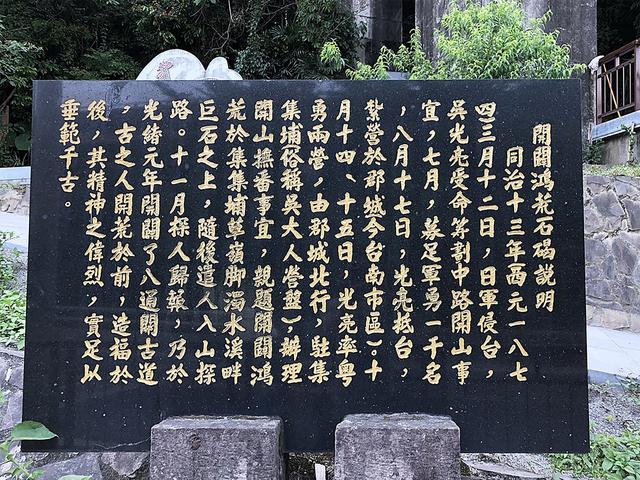 開闢鴻荒石碣說明
同治十三年西元一八七
四三月十二日，日軍侵台，
吳光亮受命籌劃中路開山事
宜，七月，募足軍勇一千名
，八月十七日，光亮抵台，
紮營於郡城今台南市區）。十
月十四、十五日，光亮率粵
勇兩營，由郡城北行，駐集
集埔俗稱吳大人營盤），辦理
開山撫番事宜，親題開闢鴻
荒於集集埔草嶺腳濁水溪畔
巨石之上，隨後遣人入山探
路。十一月探人歸報，乃於
光緒元年開闢了八通關古道
，古之人開荒於前，造福於
後，其精神之偉烈，實足以
垂範千古。